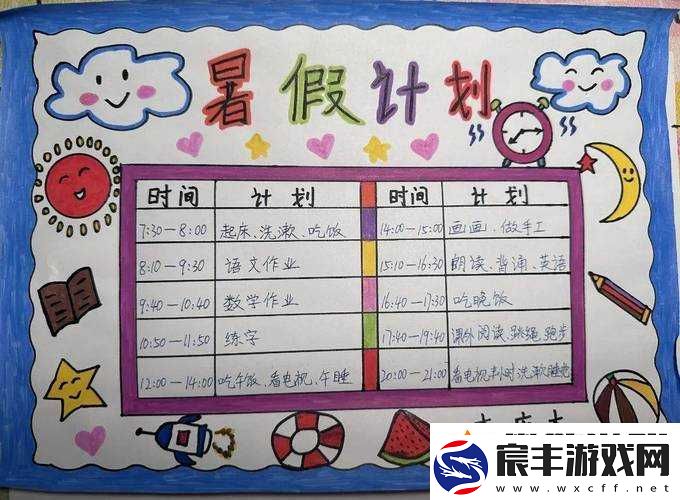 暑假计划
时间 计划 时间 计划
7:30—8:00 起床、洗漱、吃饭 14:00—15:00 画画、做手工
8:10—9:30 语文作业 15:10—16:30 朗读、背诵、英语
9:40—10:40 数学作业 16:40—17:30 吃晚饭
10:50—11:50 练字 17:40—19:40 课外阅读、跳绳、跑步
12:00—14:00 吃午饭、看电视、午睡 20:00—21:00 看电视半小时洗漱睡觉
宸丰游戏网
www.wxcff.net